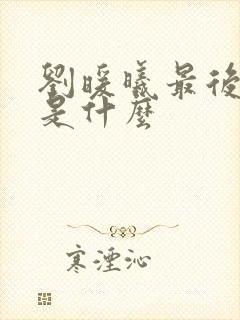 劉暖曦最後
是什麼
寒湮沁